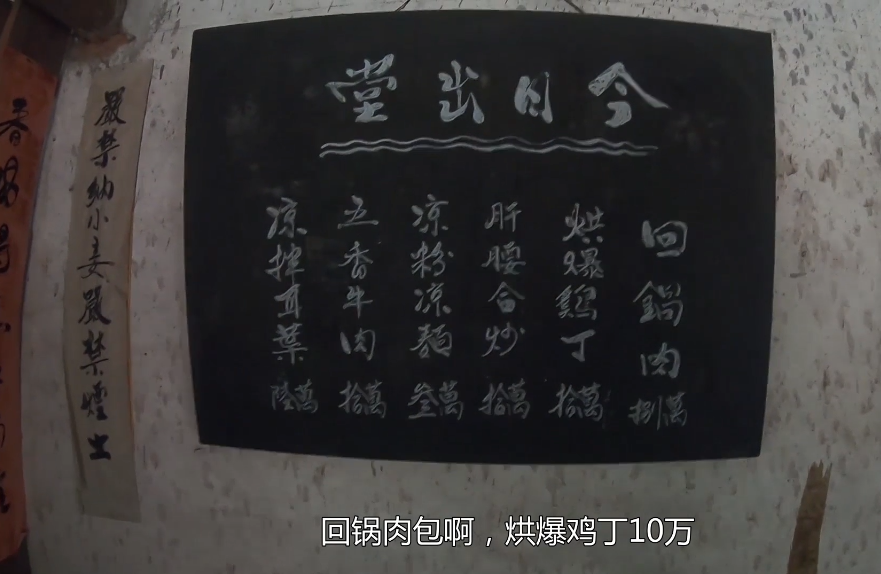 今日出堂
回鍋肉 捌萬
烘爆鷄丁 拾萬
肝腰合炒 拾萬
凉粉凉麵 叄萬
五香牛肉 拾萬
凉拌耳葉 陸萬
嚴禁納小妾嚴禁煙土
回锅肉包啊，烘爆鸡丁10万